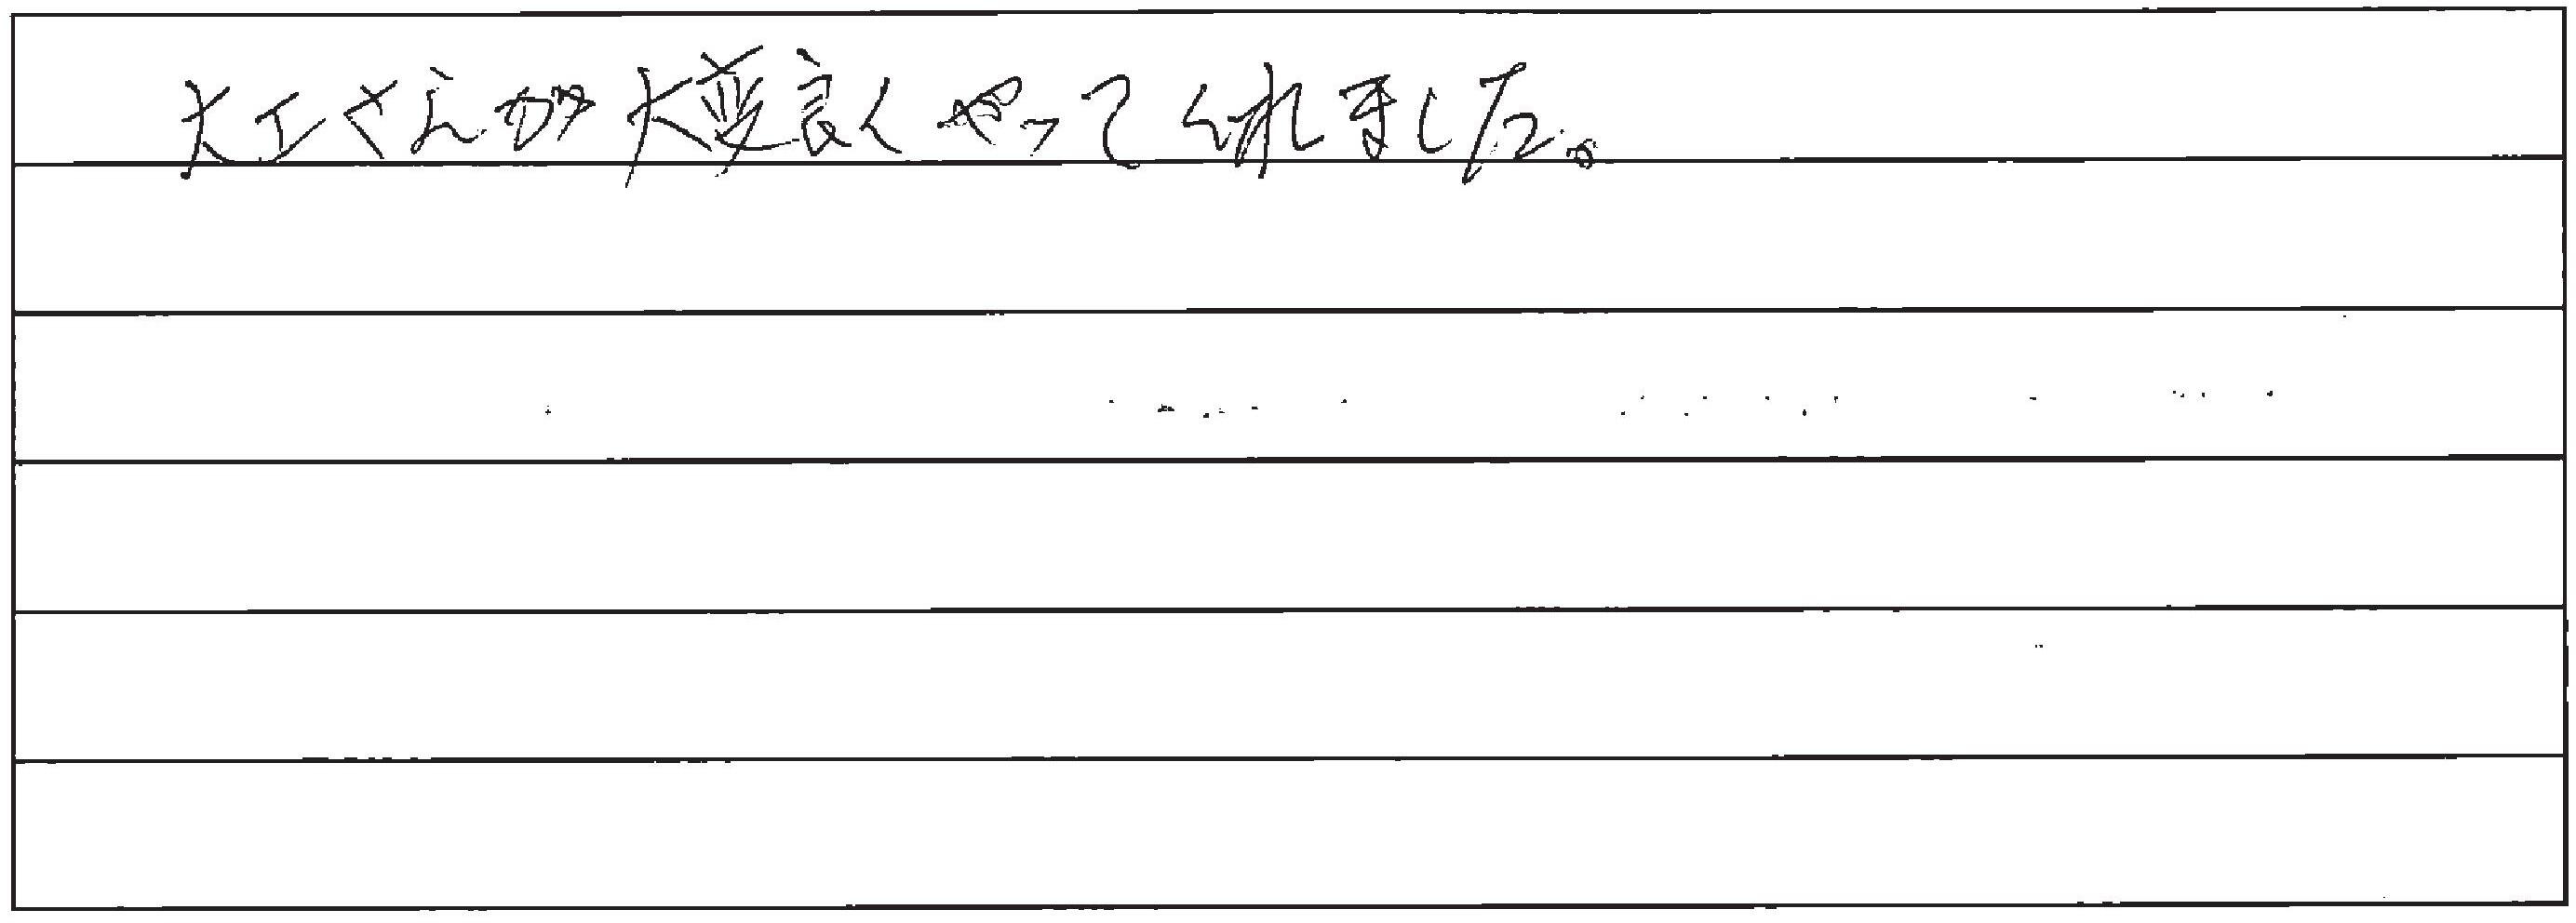 大工さんが大変良くやってくれました。